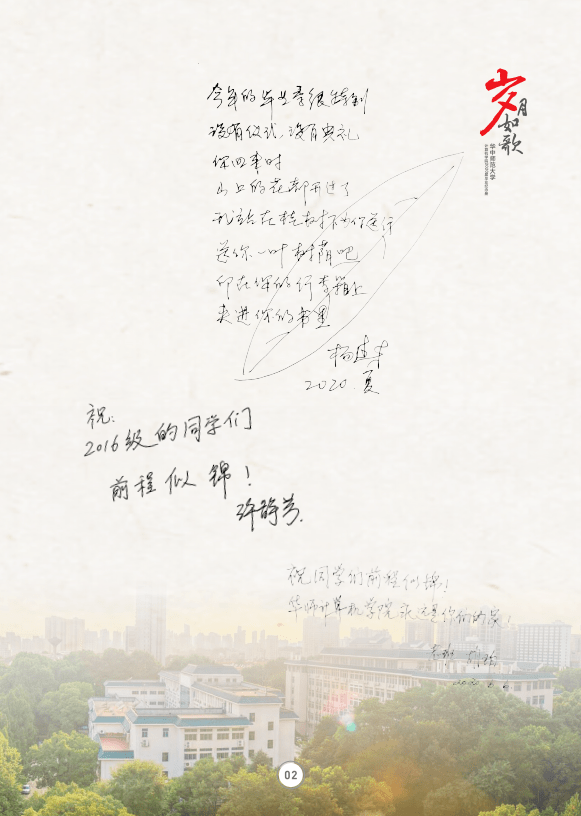 今年的毕业季很特别
没有仪式，没有典礼
你回来时
山上的花都开过了
我站在桂树下为你送行
送你一叶树荫吧
印在你的行李箱上
夹进你的书里
杨
2020.夏
岁月如歌
华中师范大学
祝：
2016级的同学们
前程似锦！
许静芳
祝同学们前程似锦！
华师计算机学院永远是你们的家！
2020.6.
02